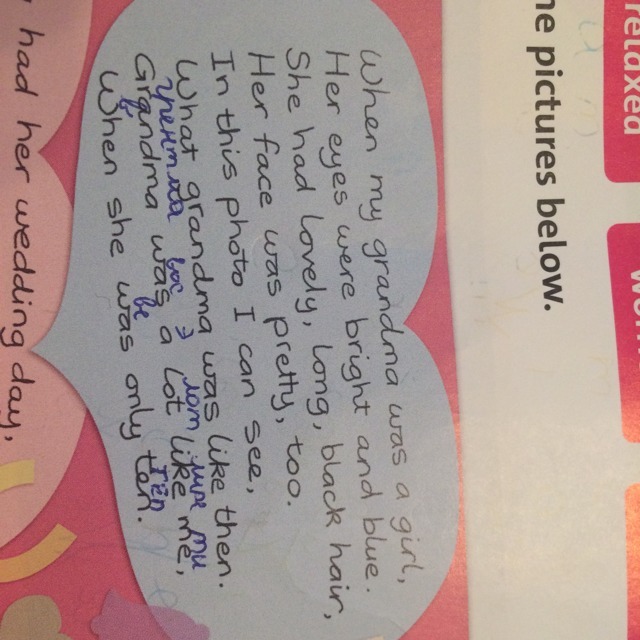 relaxed
pictures below.
When my grandma was a girl,
Her eyes were bright and blue.
She had lovely, long, black hair,
Her face was pretty, too.
In this photo I can see,
What grandma was like then.
воз э лот ми
Grandma was a lot like me,
When she was only ten.
had her wedding day,